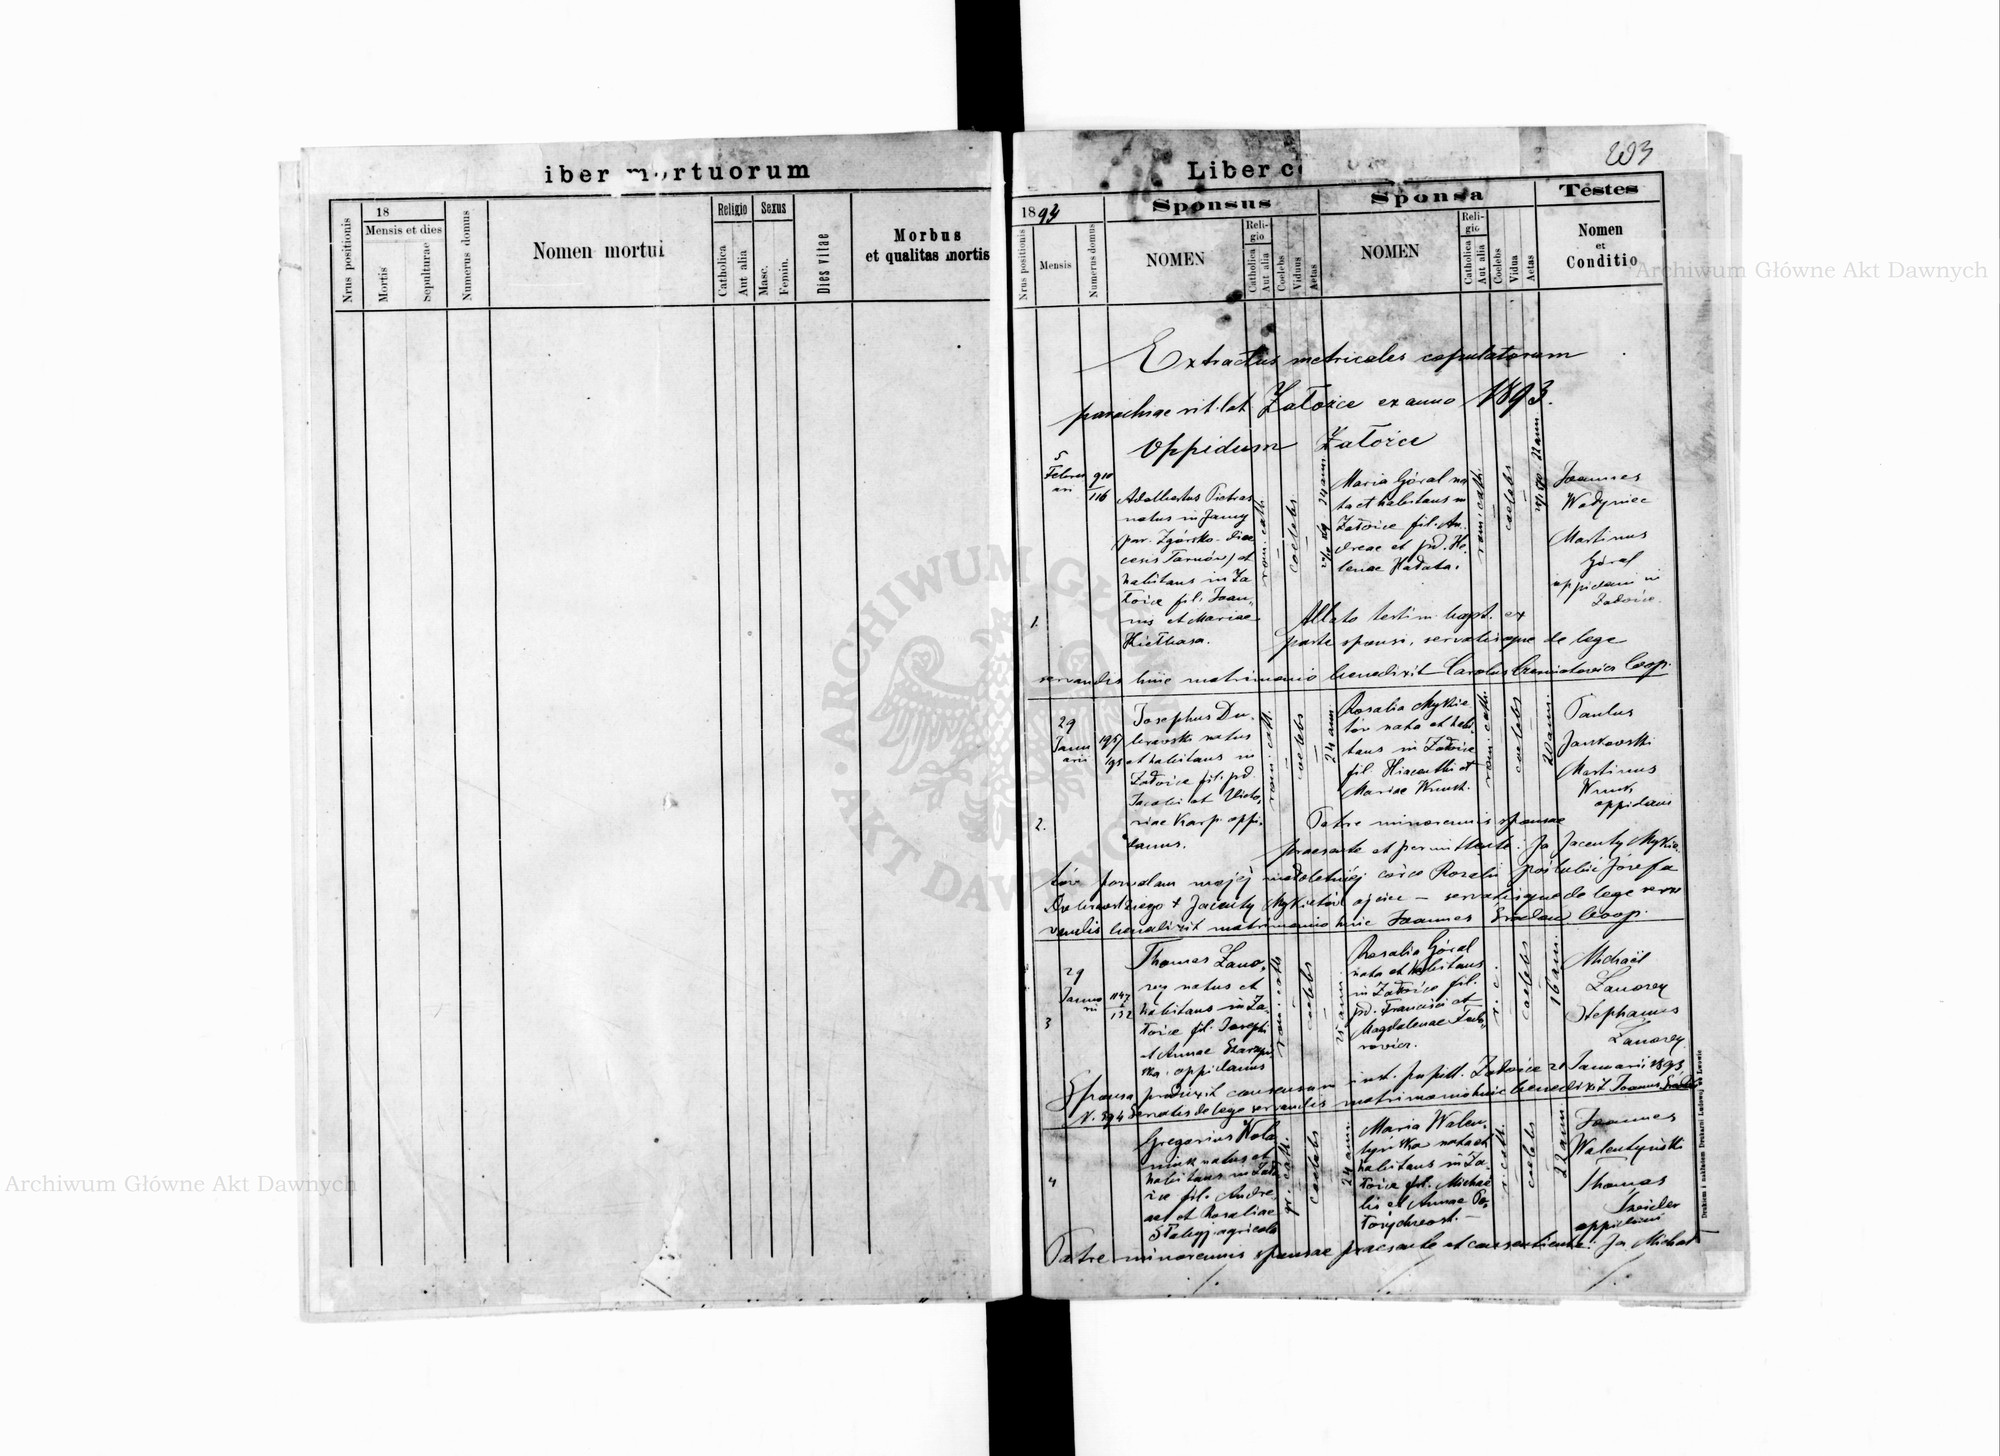 iber mortuorum
Nrus positionis
18
Mensis et dies
Mortis
Sepulturae
Numerus domus
Nomen mortui
Religio
Catholica
Aut alia
Sexus
Masc.
Femin.
Dies vitae
Morbus
et qualitas mortis
203
Liber co
1893
Sponsus
Sponsa
Testes
Nrus positionis
Mensis
Numerus domus
NOMEN
Reli-
gio
Catholica
Aut alia
Coelebs
Viduus
Aetas
NOMEN
Reli-
gio
Catholica
Aut alia
Coelebs
Vidua
Aetas
Nomen
et
Conditio
Extractus metricales copulatorum
parochiae rit. lat. Załoźce ex anno 1893.
Oppidum Załoźce
1.
5
Febru
arii
910
116
Adalbertus Pietras
natus in Jamy
par. Zgórsko dioe
cesis Tarnów, et
habitans in Za
łoźce fil. Joan
nis et Mariae
Kiełbasa.
rom: cath.
coelebs
24 ann
Maria Góral na
ta et habitans in
Załoźce fil. An
dreae et pd. He
lenae Hadała.
rom: cath.
coelebs
22 ann
Joannes
Wadyniec
Martinus
Góral
oppidani in
Załoźce.
Allato testim. bapt. ex
parte sponsi, servatisque de lege
servandis huic matrimonio benedixit Carolus Coop.
2.
29
Janu
arii
195
Josephus Du
browski natus
et habitans in
Załoźce fil. pd.
Jacobi et Victo
riae Karp oppi
danus.
rom: cath.
coelebs
24 ann
Rosalia Mykie
tów nata et habi
tans in Załoźce
fil. Hiacinthi et
Mariae Wruck.
rom: cath.
coelebs
20 ann.
Paulus
Jankowski
Martinus
Wruck
oppidani
Patre minorennis sponsae
praesente et permittente. Ja Jacenty Mykie
tów pozwalam mojej małoletniej córce Rozalii poślubić Józefa
Dubrowskiego + Jacenty Mykietów ojciec – servatisque de lege serva
vandis benedixit matrimonio huic Joannes Coop.
3
29
Janua
rii
1147
132
Thomas Zawo
rey natus et
habitans in Za
łoźce fil. Josephi
et Annae
oppidanus
rom: cath
coelebs
25 ann.
Rosalia Góral
nata et habitans
in Załoźce fil.
pd. Francisci et
Magdalenae Fedo
rowicz.
r. c.
coelebs
16 ann.
Michaël
Zaworey
Stephanus
Zaworey
Sponsa produxit consensum inst. pupill. Załoźce 21 Januarii 1893
N. 394 Servatis de lege servandis matrimonio huic benedixit Joannes
4
Gregorius Wola
niuk natus et
habitans in Zało
źce fil. Andre
ae et Rosaliae
agricola
gr. cath.
coelebs
24 ann.
Maria Walen
tyńska nata et
habitans in Za
łoźce fil. Michae
lis et Annae
r. cath.
coelebs
22 ann.
Joannes
Walentyński
Thomas
oppidani
Patre minorennis sponsae praesente et consentiente: Ja Michał
Drukiem i nakładem Drukarni Ludowej we Lwowie
Archiwum Główne Akt Dawnych
Archiwum Główne Akt Dawnych
ARCHIWUM GŁÓWNE AKT DAWNYCH